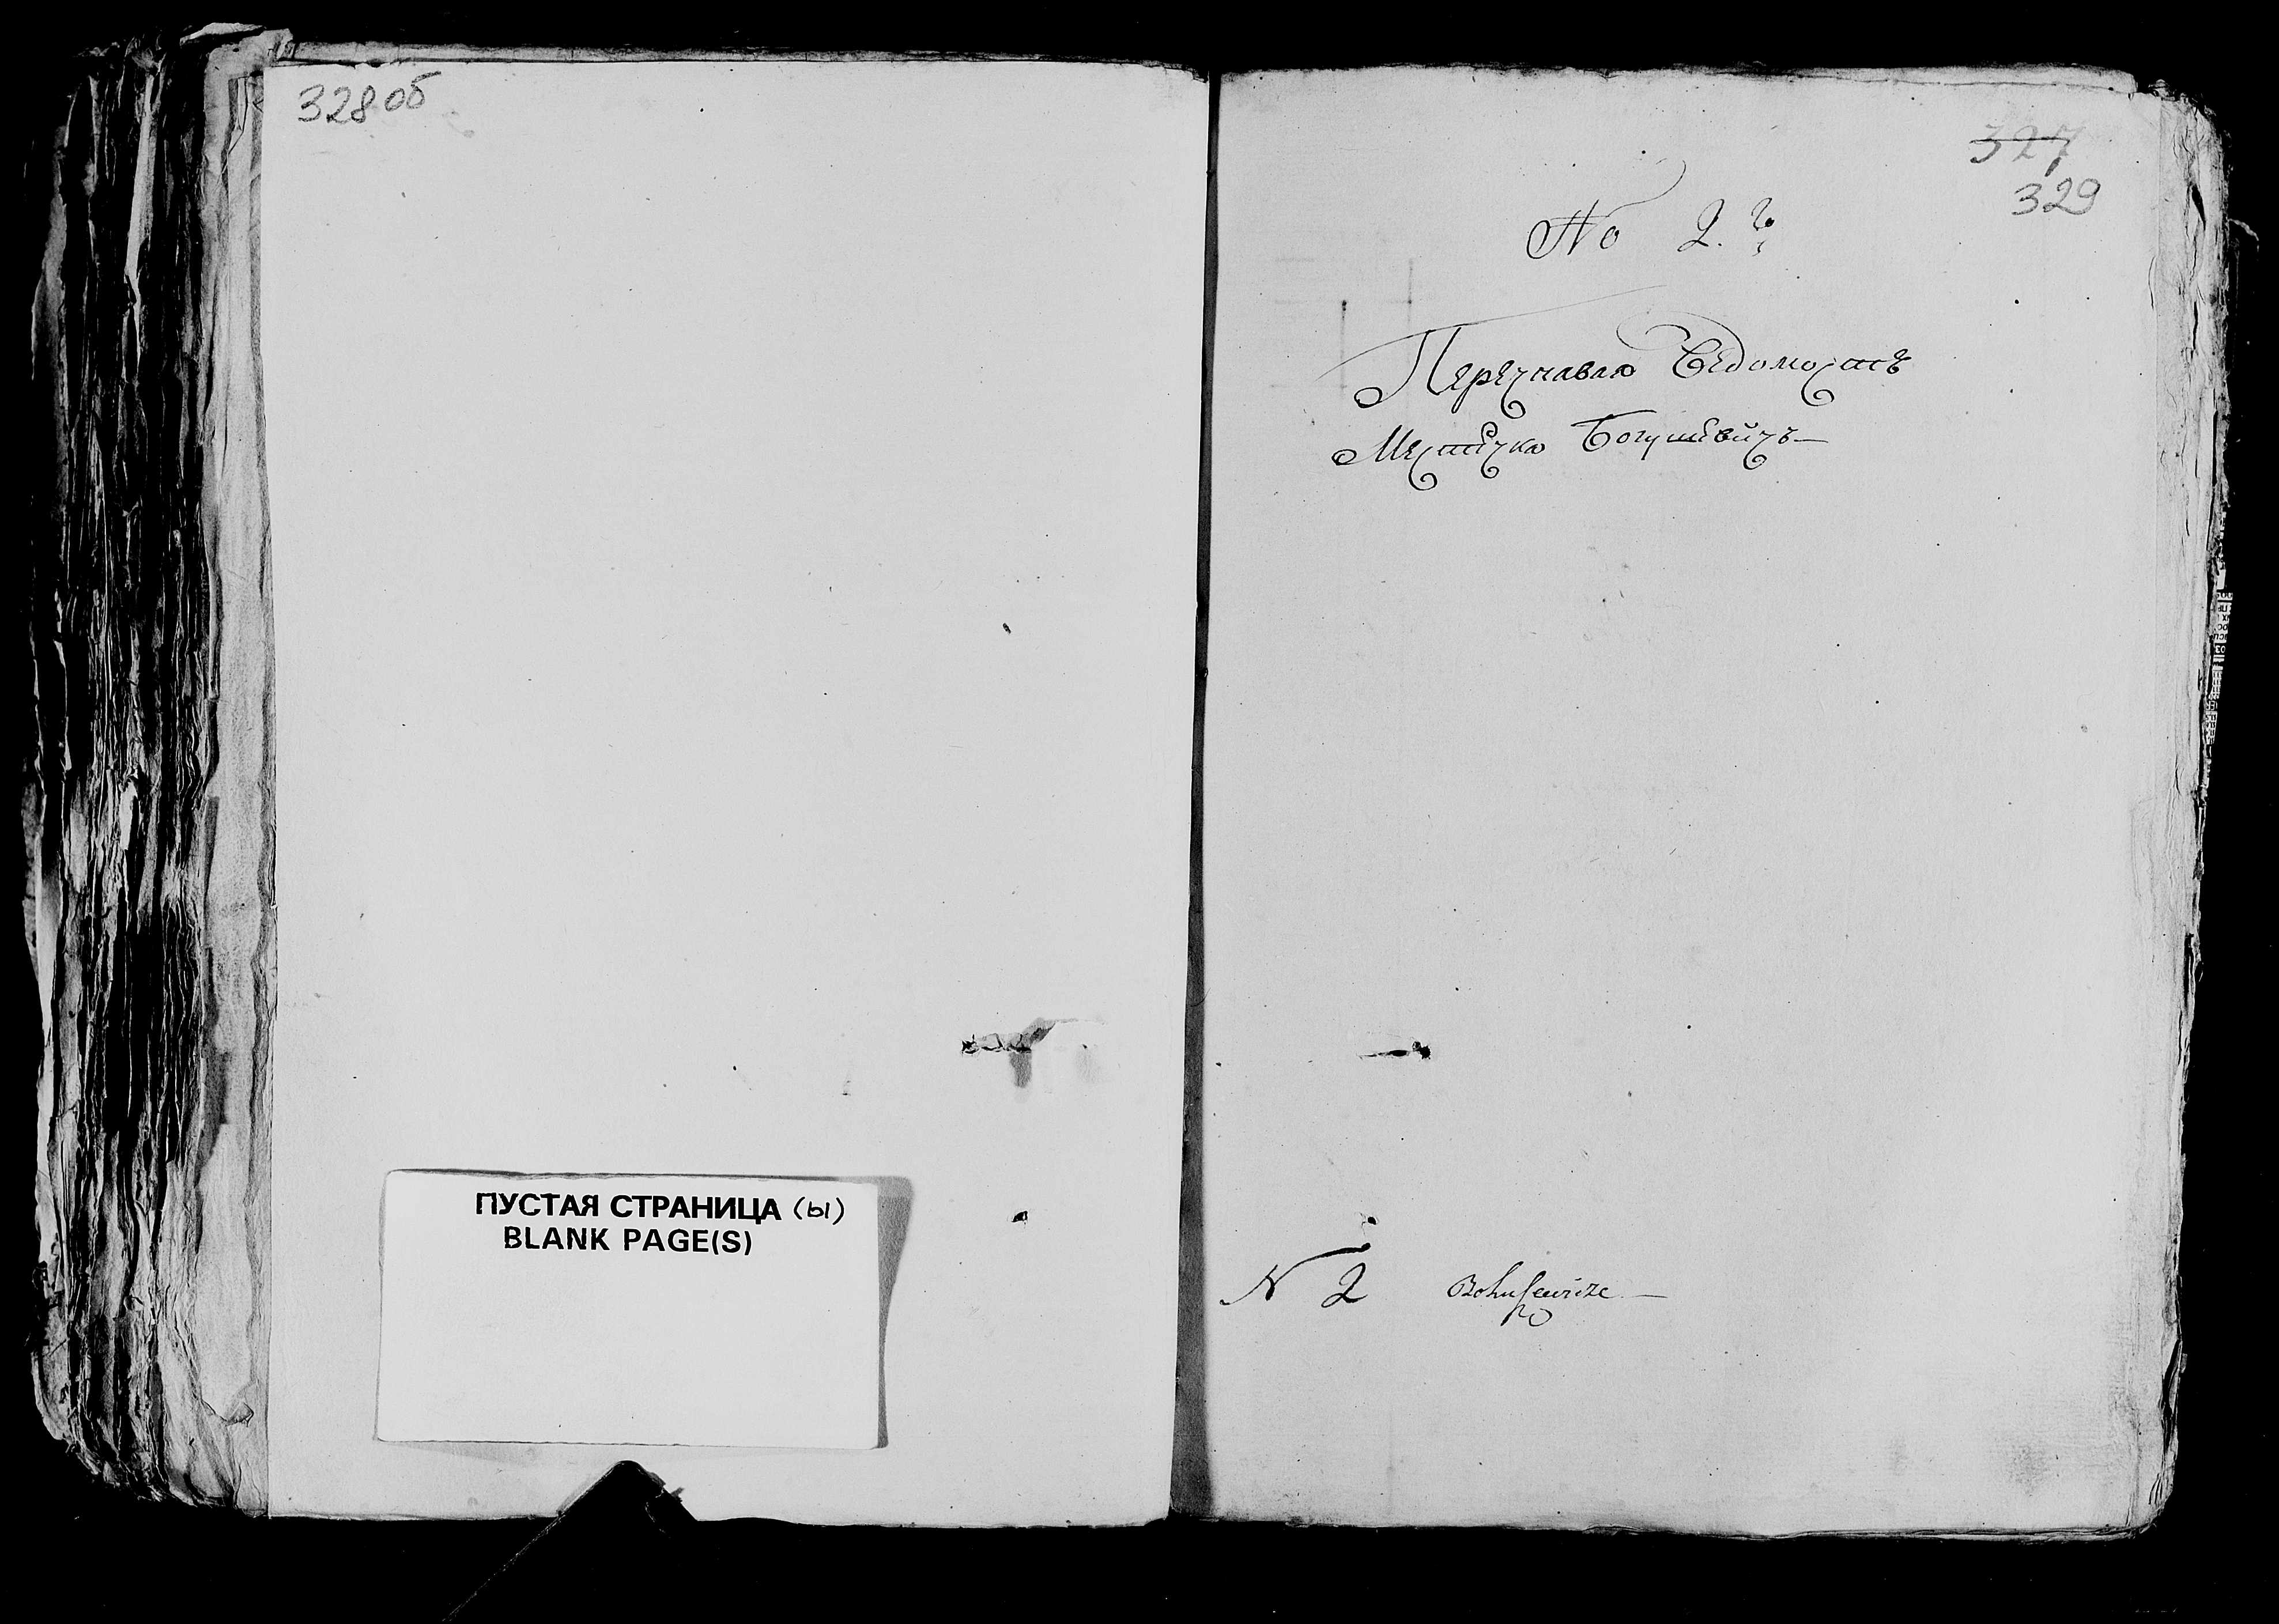 328 об
ПУСТАЯ СТРАНИЦА (ы)
BLANK PAGE(S)
327
329
No 2.го
Перечнавая Ведомость
Местечка Богушевичъ
N 2 Bohusewicze